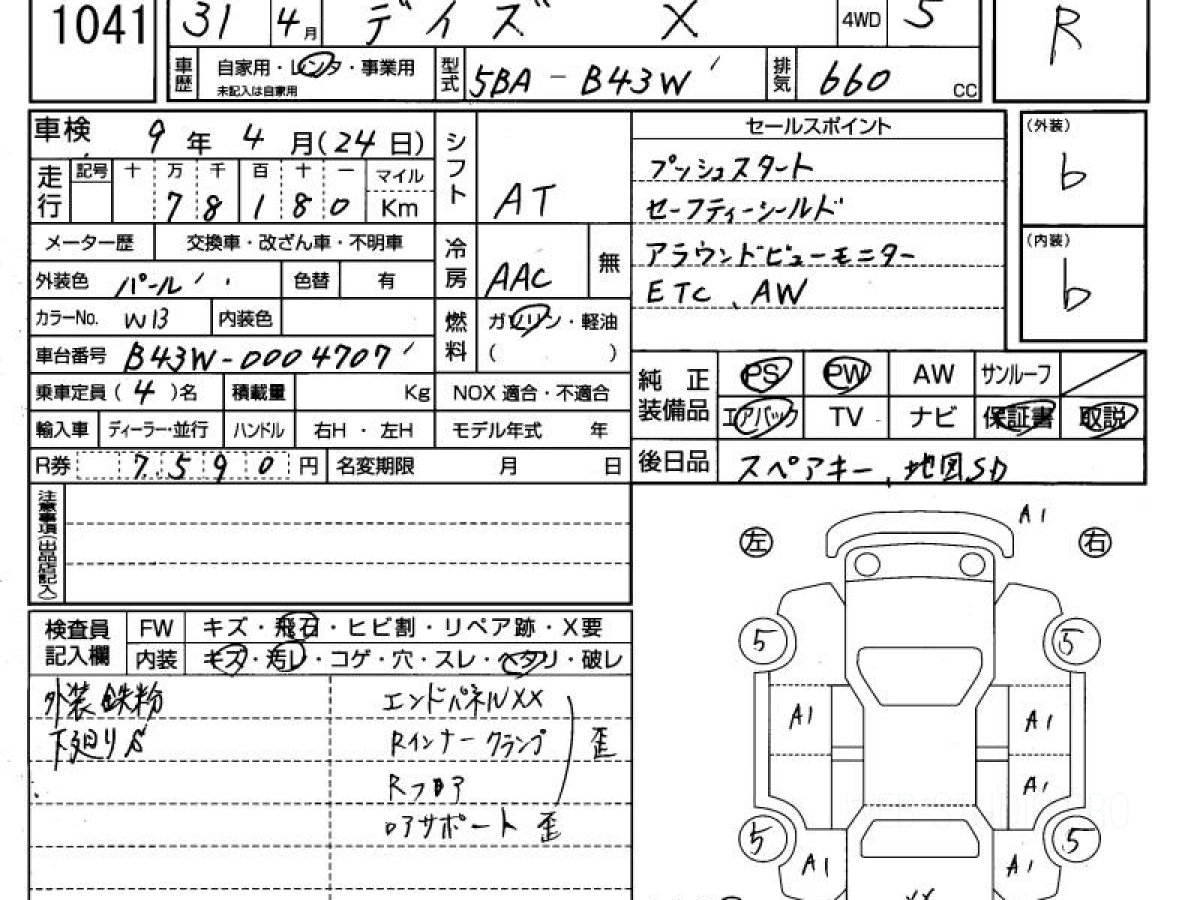 1041 31 4月 デイズ X 4WD 5 R
車歴 自家用・レンタ・事業用 未記入は自家用 型式 5BA-B43W 排気 660 CC
車検 9年4月(24日) シフト AT セールスポイント (外装) b
走行 記号 十 万 千 百 十 一 マイル プッシュスタート
7 8 1 8 0 Km セーフティーシールド
メーター歴 交換車・改ざん車・不明車 冷房 AAC 無 アラウンドビューモニター (内装) b
外装色 パール 色替 有 ETC、AW
カラーNo. W13 内装色 燃料 ガソリン・軽油
車台番号 B43W-0004707 ( )
乗車定員(4)名 積載量 Kg NOX 適合・不適合 純正装備品 PS PW AW サンルーフ
輸入車 ディーラー・並行 ハンドル 右H・左H モデル年式 年 エアバック TV ナビ 保証書 取説
R券 7,590円 名変期限 月 日 後日品 スペアキー、地図SD
注意事項(出品店記入)
左 右 A1
検査員記入欄 FW キズ・飛石・ヒビ割・リペア跡・X要
内装 キズ・汚レ・コゲ・穴・スレ・ヘタリ・破レ
5 5
外装鉄粉 エンドパネルXX
下廻りS Rインナークランプ 歪
Rフロア
ロアサポート歪
A1 A1
A1
5 5
A1 A1
XX